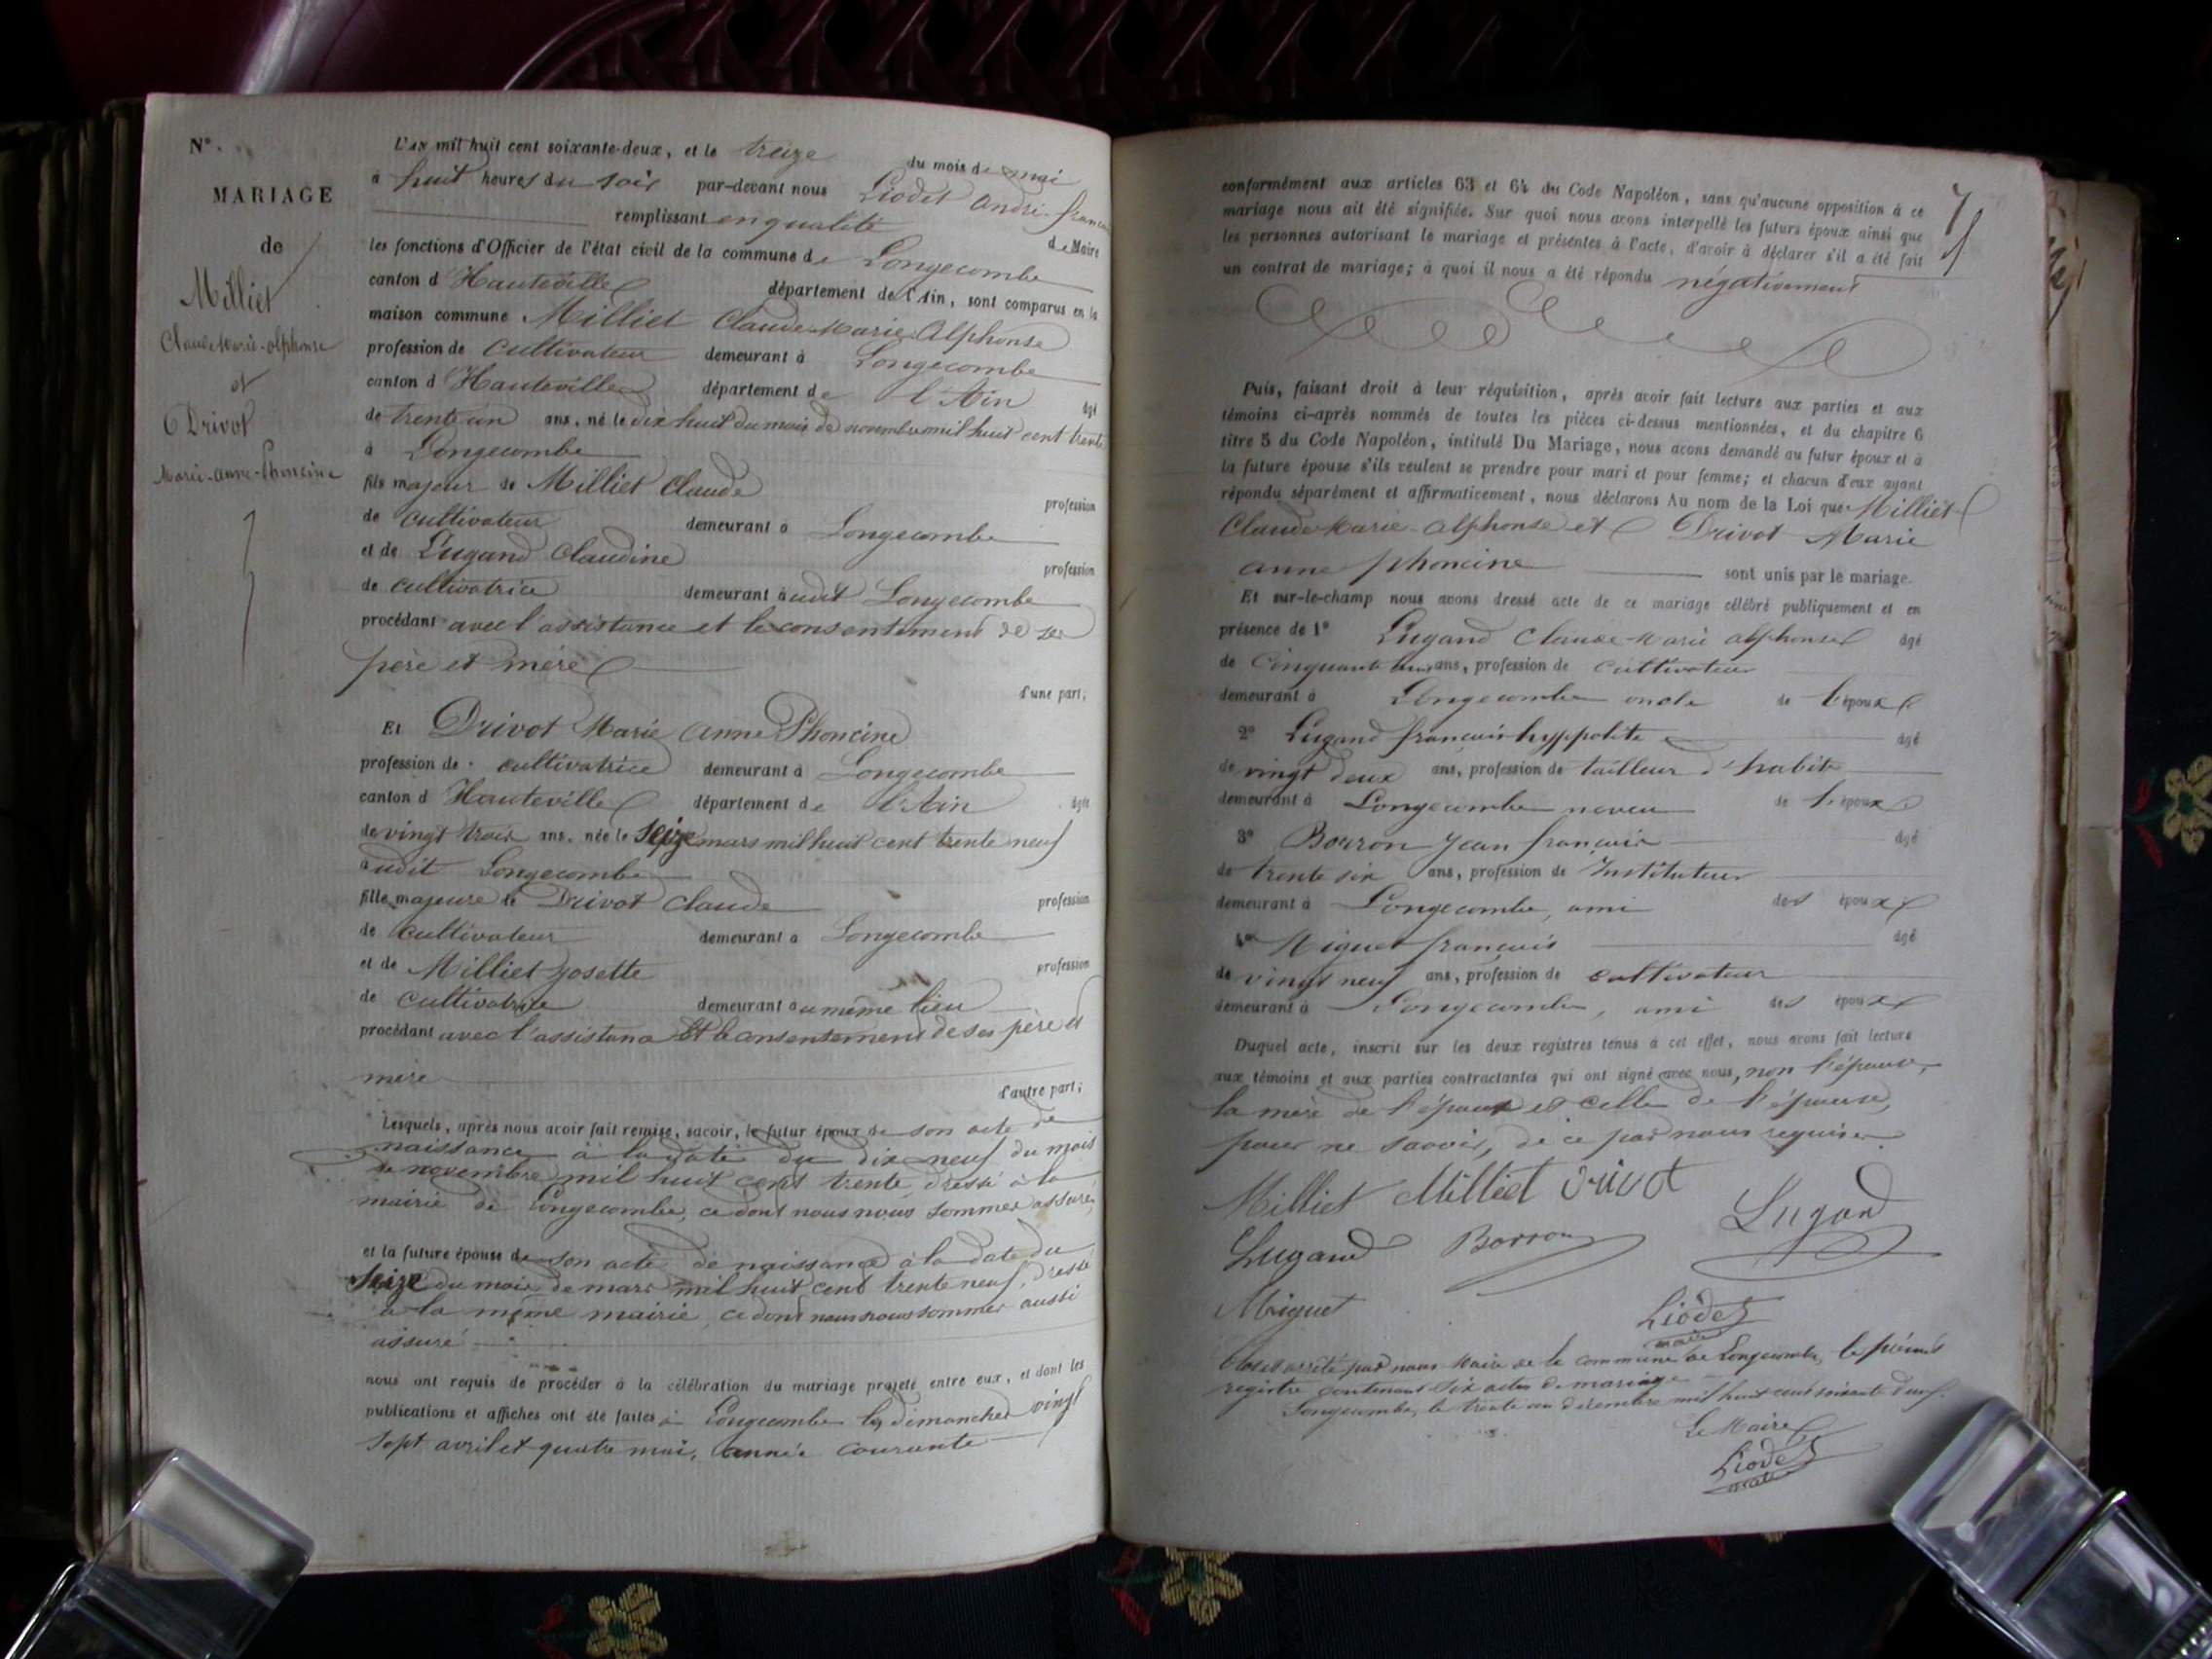 N°.
MARIAGE
de
Milliet
Claude Marie-Alphonse
et
Drivot
Marie-Anne-Phoncine
L'AN mil huit cent soixante-deux, et le treize du mois de mai
à huit heures du soir par-devant nous Liodet André-françois
remplissant en qualité de Maire
les fonctions d'Officier de l'état civil de la commune de Longecombe
canton d'Hauteville département de l'Ain, sont comparus en la
maison commune Milliet Claude Marie Alphonse
profession de cultivateur demeurant à Longecombe
canton d'Hauteville département de l'Ain âgé
de trente un ans, né le dix huit du mois de novembre mil huit cent trente
à Longecombe
fils majeur de Milliet Claude profession
de cultivateur demeurant à Longecombe
et de Lugand Claudine profession
de cultivatrice demeurant audit Longecombe
procédant avec l'assistance et le consentement de ses
père et mère
d'une part;
Et Drivot Marie Anne Phoncine
profession de cultivatrice demeurant à Longecombe
canton d'Hauteville département de l'Ain âgée
de vingt trois ans, née le Seize mars mil huit cent trente neuf
audit Longecombe
fille majeure de Drivot Claude profession
de cultivateur demeurant à Longecombe
et de Milliet Josette profession
de cultivatrice demeurant au même lieu
procédant avec l'assistance et le consentement de ses père et
mère
d'autre part;
Lesquels, après nous avoir fait remise, savoir, le futur époux de son acte de
naissance à la date du dix neuf du mois
de novembre mil huit cent trente, dressé à la
mairie de Longecombe, ce dont nous nous sommes assuré,
et la future épouse de son acte de naissance à la date du
Seize du mois de mars mil huit cent trente neuf, dressé
à la même mairie, ce dont nous nous sommes aussi
assuré
nous ont requis de procéder à la célébration du mariage projeté entre eux, et dont les
publications et affiches ont été faites à Longecombe les dimanches vingt
sept avril et quatre mai, année courante
7
conformément aux articles 63 et 64 du Code Napoléon, sans qu'aucune opposition à ce
mariage nous ait été signifiée. Sur quoi nous avons interpellé les futurs époux ainsi que
les personnes autorisant le mariage et présentes à l'acte, d'avoir à déclarer s'il a été fait
un contrat de mariage; à quoi il nous a été répondu négativement
Puis, faisant droit à leur réquisition, après avoir fait lecture aux parties et aux
témoins ci-après nommés de toutes les pièces ci-dessus mentionnées, et du chapitre 6
titre 5 du Code Napoléon, intitulé Du Mariage, nous avons demandé au futur époux et à
la future épouse s'ils veulent se prendre pour mari et pour femme; et chacun d'eux ayant
répondu séparément et affirmativement, nous déclarons Au nom de la Loi que Milliet
Claude Marie-Alphonse et Drivot Marie
anne phoncine sont unis par le mariage.
Et sur-le-champ nous avons dressé acte de ce mariage célébré publiquement et en
présence de 1° Lugand Claude Marie alphonse âgé
de Cinquante ans, profession de cultivateur
demeurant à Longecombe oncle de l'époux
2° Lugand françois hyppolite âgé
de vingt deux ans, profession de tailleur d'habits
demeurant à Longecombe neveu de l'époux
3° Borron Jean françois âgé
de trente six ans, profession de Instituteur
demeurant à Longecombe, ami des époux
4° Miguet françois âgé
de vingt neuf ans, profession de cultivateur
demeurant à Longecombe, ami des époux
Duquel acte, inscrit sur les deux registres tenus à cet effet, nous avons fait lecture
aux témoins et aux parties contractantes qui ont signé avec nous, non l'épouse,
la mère de l'époux et celle de l'épouse,
pour ne savoir, de ce par nous requises.
Milliet Milliet Drivot Lugand
Lugand Borron
Miguet Liodet
maire
Clos et arrêté par nous Maire de la commune de Longecombe, le présent
registre contenant six actes de mariage
Longecombe, le trente un décembre mil huit cent soixante deux.
Le Maire
Liodet
maire